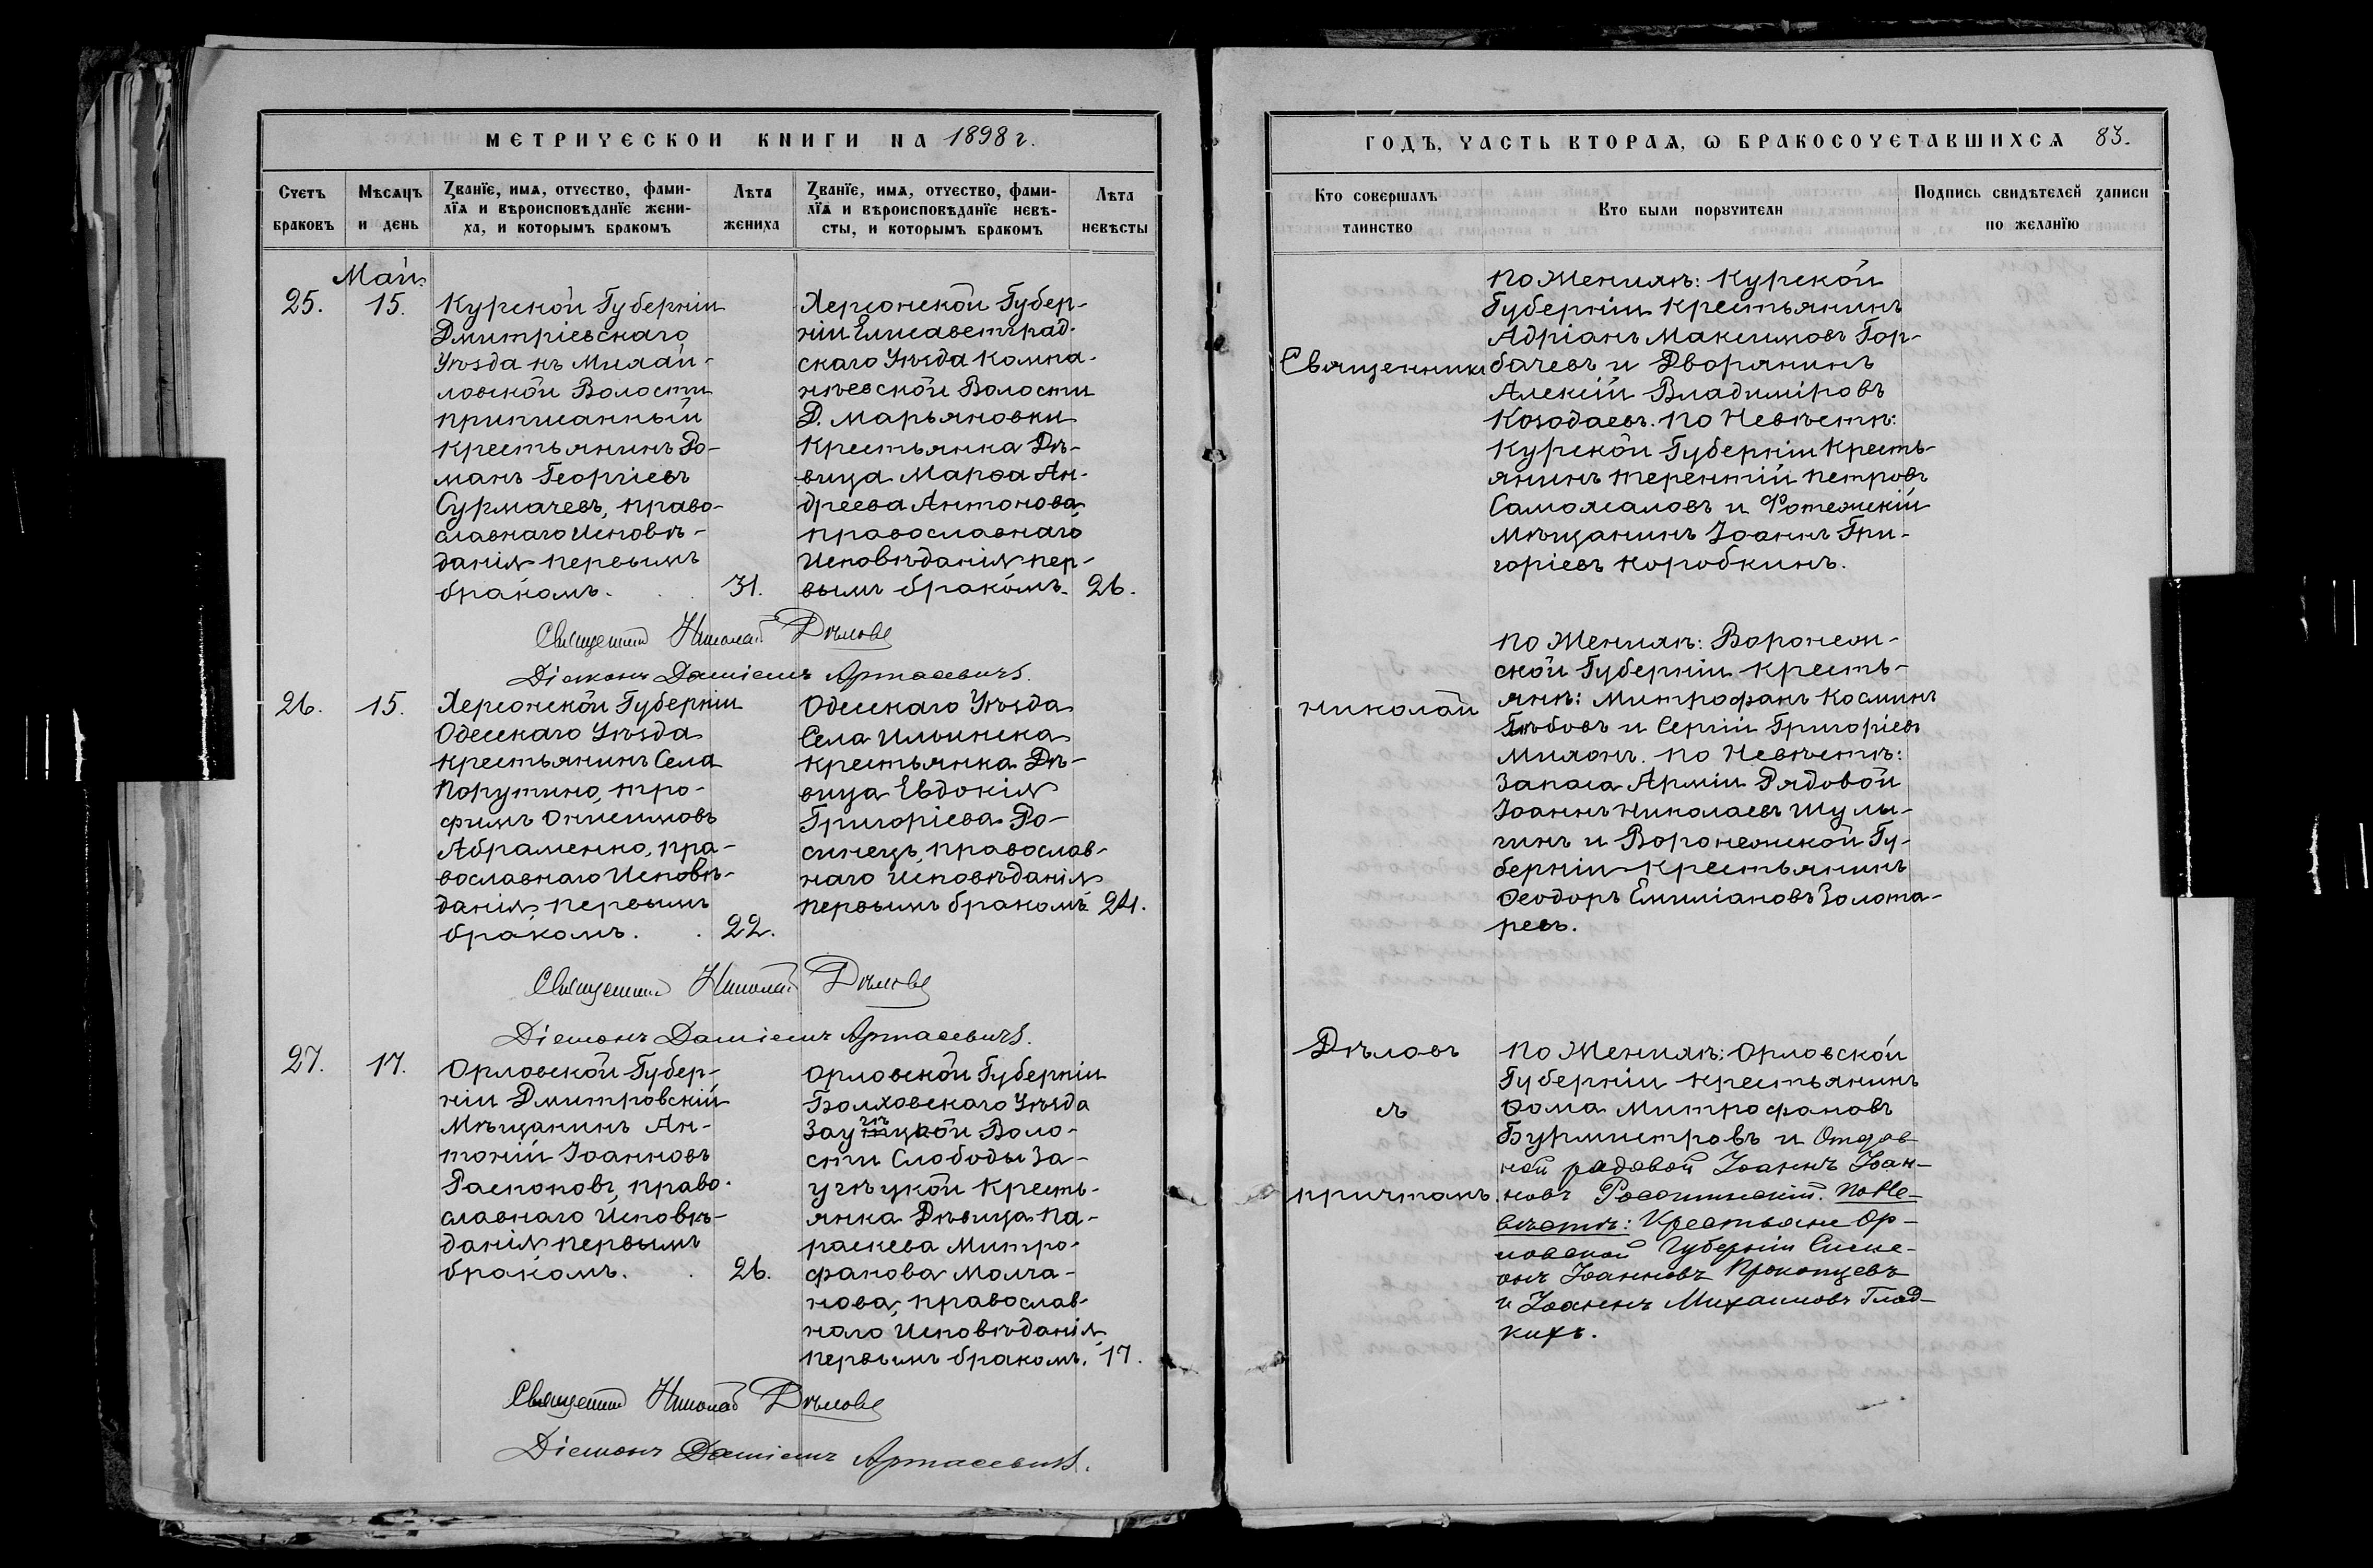 МЕТРИЧЕСКОЙ КНИГИ НА 1898 г.
Счетъ браковъ
Мѣсяцъ и день
Званїе, имѧ, отчество, фами-
лїѧ и вѣроисповѣданїе жени-
ха, и которымъ бракомъ
Лѣта жениха
Званїе, имѧ, отчество, фами-
лїѧ и вѣроисповѣданїе невѣ-
сты, и которымъ бракомъ
Лѣта невѣсты
Май.
25.
15.
Курской Губерніи
Дмитріевскаго
Уѣзда къ Михай-
ловской Волости
приписанный
крестьянинъ Ро-
манъ Георгіевъ
Сурмачевъ, право-
славнаго Исповѣ-
данія первымъ
бракомъ.
31.
Херсонской Губер-
ніи Елисаветград-
скаго Уѣзда Компа-
нѣевской Волости
Д. Марьяновки
Крестьянка Дѣ-
вица Марѳа Ан-
дреева Антонова
православнаго
Исповѣданія пер-
вымъ бракомъ.
26.
Священник Николай Дѣловъ
Діаконъ Даміанъ Артасевичъ.
26.
15.
Херсонской Губерніи
Одесскаго Уѣзда
крестьянинъ Села
Порутино, Тро-
фимъ Онисимовъ
Абраменко, пра-
вославнаго Исповѣ-
данія, первымъ
бракомъ.
22.
Одесскаго Уѣзда
Села Ильинска
крестьянка Дѣ-
вица Евдокія
Григоріева Ро-
синецъ, православ-
наго исповѣданія
первымъ бракомъ
24.
Священник Николай Дѣловъ
Діаконъ Даміанъ Артасевичъ.
27.
17.
Орловской Губер-
ніи Дмитровскій
Мѣщанинъ Ан-
тоній Іоанновъ
Распоповъ, право-
славнаго Исповѣ-
данія первымъ
бракомъ.
26.
Орловской Губерніи
Болховскаго Уѣзда
Заугѣцкой Воло-
сти Слободы За-
угѣцкой Кресть-
янка Дѣвица Па-
раскева Митро-
фанова Молча-
нова, православ-
наго Исповѣданія,
первымъ бракомъ.
17.
Священник Николай Дѣловъ
Діаконъ Даміанъ Артасевичъ.
ГОДЪ, ЧАСТЬ ВТОРАѦ, Ѡ БРАКОСОЧЕТАВШИХСѦ 83.
Кто совершалъ таинство
Кто были порꙋчители
Подпись свидѣтелей записи по желанїю
Священникъ
Николай
Дѣловъ
съ
причтомъ.
По Женихѣ: Курской
Губерніи крестьянинъ
Адріанъ Максимовъ Гор-
бачевъ и Дворянинъ
Алексій Владиміровъ
Козодаевъ. По Невѣстѣ:
Курской Губерніи Кресть-
янинъ Терентій Петровъ
Саможаловъ и Фотежскій
Мѣщанинъ Іоаннъ Гри-
горіевъ Коробкинъ.
По Женихѣ: Воронеж-
ской Губерніи Кресть-
янѣ: Митрофанъ Косминъ
и Сергій Григоріевъ
Милонъ. По Невѣстѣ:
Запаса Арміи Рядовой
Іоаннъ Николаевъ Шулы-
гинъ и Воронежской Гу-
берніи Крестьянинъ
Ѳеодоръ Емиліановъ Золота-
ревъ.
По Женихѣ: Орловской
Губерніи Крестьянинъ
Ѳома Митрофановъ
Бурмистровъ и Отстав-
ной рядовой Іоаннъ Іоан-
новъ По Не-
вѣстѣ: Крестьяне Ор-
ловской Губерніи Симе-
онъ Іоанновъ Прокопцевъ
и Іоаннъ Михаиловъ Глад-
кихъ.